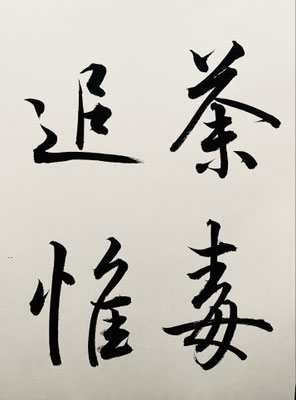 荼毒
追惟